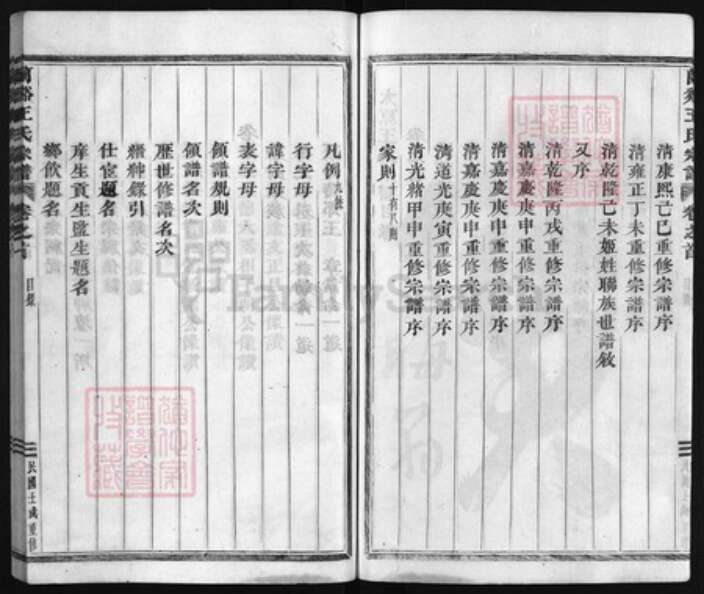 清康熙己巳重修宗譜序
清雍正丁未重修宗譜序
清乾隆己未姬姓聯族世譜敘
又序
清乾隆丙戌重修宗譜序
清嘉慶庚申重修宗譜序
清嘉慶庚申重修宗譜序
清道光庚寅重修宗譜序
清光緒甲申重修宗譜序
家則 十有八則
凡例 九條
行字母
諱字母
表字母
領譜規則
領譜名次
歷世修譜名次
縉紳錄引
仕宦題名
庠生貢生監生題名
鄉飲題名
王氏宗譜 卷之首 目錄
民國壬戌重修